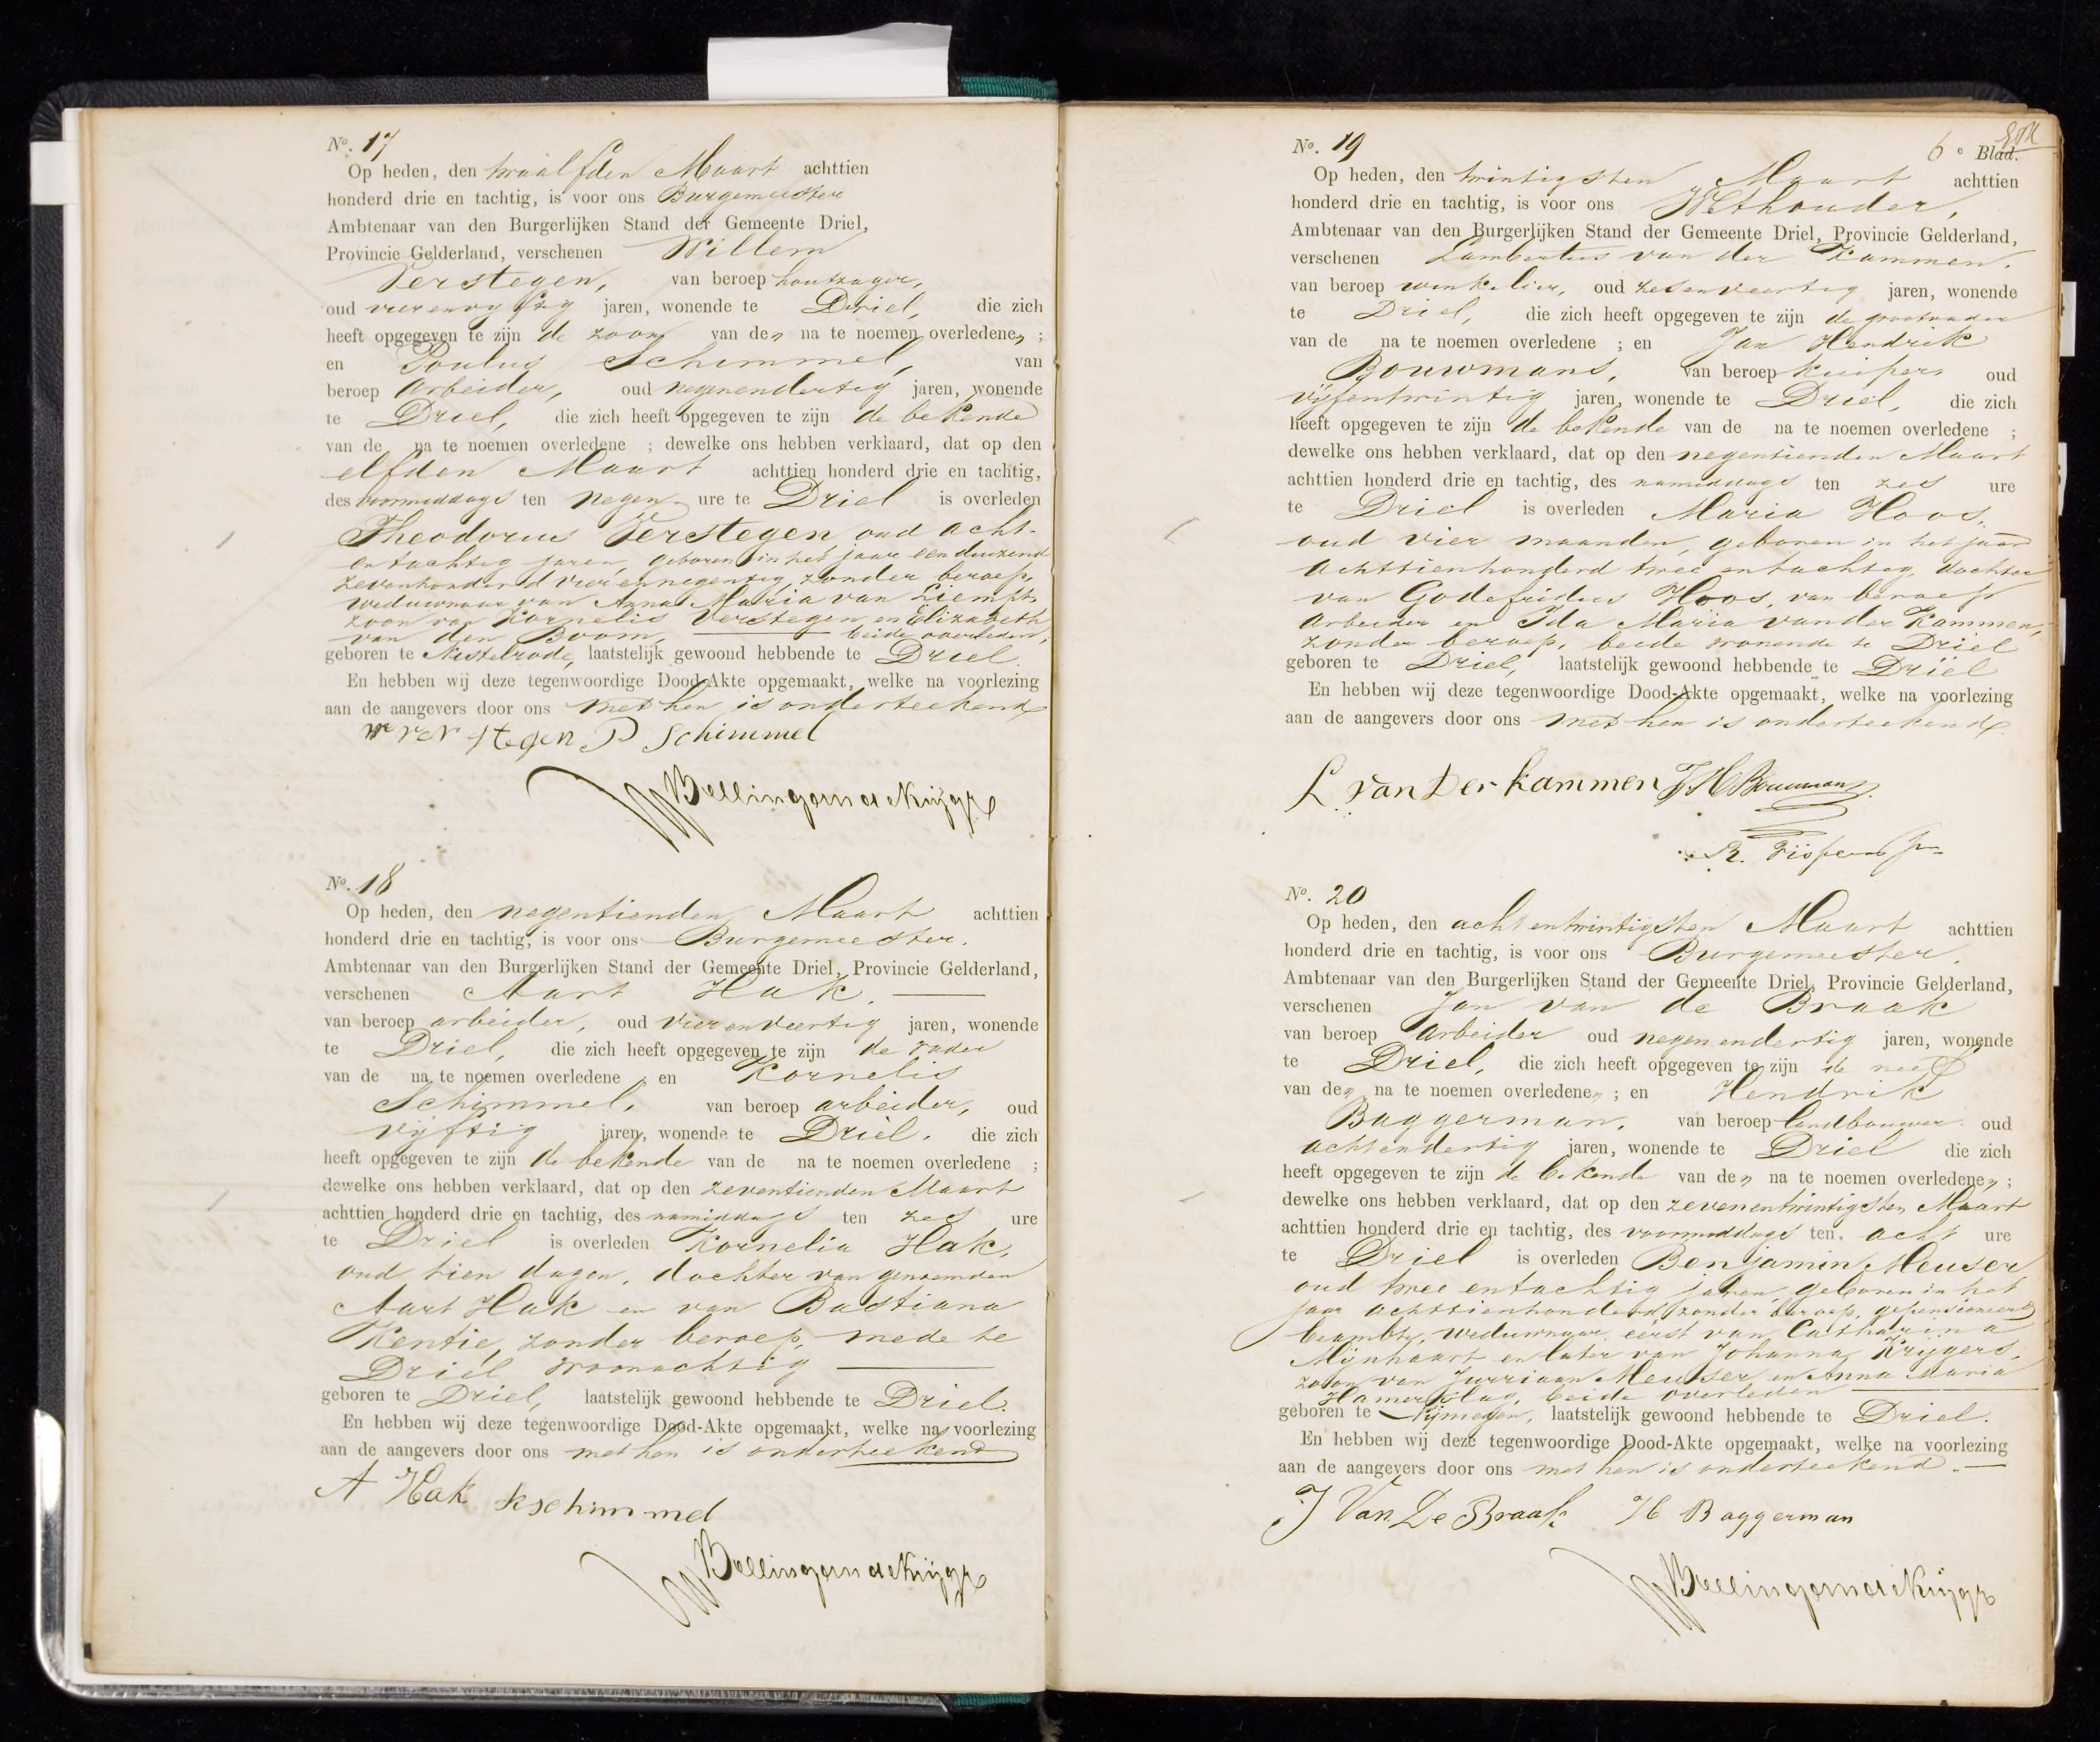 No. 17
Op heden, den twaalfden Maart achttien
honderd drie en tachtig, is voor ons Burgemeester
Ambtenaar van den Burgerlijken Stand der Gemeente Driel,
Provincie Gelderland, verschenen Willem
Verstegen, van beroep houtzager,
oud vierenvyftig jaren, wonende te Driel, die zich
heeft opgegeven te zijn de zoon van den na te noemen overledenen ;
en Poulus Schimmel, van
beroep arbeider, oud negenendertig jaren, wonende
te Driel, die zich heeft opgegeven te zijn de bekende
van de na te noemen overledene ; dewelke ons hebben verklaard, dat op den
elfden Maart achttien honderd drie en tachtig,
des voormiddags ten negen ure te Driel is overleden
Theodorus Verstegen oud acht-
en tachtig jaren, geboren in het jaar een duizend
zevenhonderd vier en negentig, zonder beroep,
weduwnaar van Anna Maria van Liempt,
zoon van Kornelis Verstegen en Elizabeth
van den Boom, beide overleden,
geboren te Nistelrode, laatstelijk gewoond hebbende te Driel.
En hebben wij deze tegenwoordige Dood-Akte opgemaakt, welke na voorlezing
aan de aangevers door ons met hen is onderteekend
W verstegen P Schimmel
No. 18
Op heden, den negentienden Maart achttien
honderd drie en tachtig, is voor ons Burgemeester.
Ambtenaar van den Burgerlijken Stand der Gemeente Driel, Provincie Gelderland,
verschenen Aart Hak.
van beroep arbeider, oud vier en veertig jaren, wonende
te Driel, die zich heeft opgegeven te zijn de vader
van de na te noemen overledene ; en Kornelis
Schimmel, van beroep arbeider, oud
vijftig jaren, wonende te Driel. die zich
heeft opgegeven te zijn de bekende van de na te noemen overledene ;
dewelke ons hebben verklaard, dat op den zeventienden Maart
achttien honderd drie en tachtig, des namiddags ten zes ure
te Driel is overleden Kornelia Hak,
oud tien dagen, dochter van genoemden
Aart Hak en van Bastiana
Kentie, zonder beroep, mede te
Driel woonachtig
geboren te Driel, laatstelijk gewoond hebbende te Driel.
En hebben wij deze tegenwoordige Dood-Akte opgemaakt, welke na voorlezing
aan de aangevers door ons met hen is onderteekend
A Hak k schimmel
6e Blad.
No. 19
Op heden, den twintigsten Maart achttien
honderd drie en tachtig, is voor ons Wethouder,
Ambtenaar van den Burgerlijken Stand der Gemeente Driel, Provincie Gelderland,
verschenen Lambertus van der Kammen.
van beroep winkelier, oud zesenveertig jaren, wonende
te Driel, die zich heeft opgegeven te zijn de grootvader
van de na te noemen overledene ; en Jan Hendrik
Bouwmans, van beroep kuiper oud
vijfentwintig jaren, wonende te Driel, die zich
heeft opgegeven te zijn de bekende van de na te noemen overledene ;
dewelke ons hebben verklaard, dat op den negentienden Maart
achttien honderd drie en tachtig, des namiddags ten zes ure
te Driel is overleden Maria Hoos,
oud vier maanden, geboren in het jaar
achttienhonderd twee en tachtig, dochter
van Godefridus Hoos, van beroep
arbeider en Ida Maria van der Kammen,
zonder beroep, beide wonende te Driel
geboren te Driel, laatstelijk gewoond hebbende te Driel
En hebben wij deze tegenwoordige Dood-Akte opgemaakt, welke na voorlezing
aan de aangevers door ons met hen is onderteekend.
L van Der kammen JH Bouwmans
No. 20
Op heden, den achtentwintigsten Maart achttien
honderd drie en tachtig, is voor ons Burgemeester.
Ambtenaar van den Burgerlijken Stand der Gemeente Driel, Provincie Gelderland,
verschenen Jan van de Braak
van beroep arbeider oud negenendertig jaren, wonende
te Driel, die zich heeft opgegeven te zijn de neef
van den na te noemen overledenen ; en Hendrik
Baggerman, van beroep landbouwer oud
achtendertig jaren, wonende te Driel die zich
heeft opgegeven te zijn de bekende van den na te noemen overledenen ;
dewelke ons hebben verklaard, dat op den zevenentwintigsten Maart
achttien honderd drie en tachtig, des voormiddags ten acht ure
te Driel is overleden Benjamin Meuser
oud twee entachtig jaren, geboren in het
jaar achttienhonderd, zonder beroep, gepensioneerd
beambte, weduwnaar eerst van Catharina
Mijnhaart en later van Johanna Krijgers,
zoon van Jurriaan Meuser en Anna Maria
Hamerslag, beide overleden
geboren te Nijmegen, laatstelijk gewoond hebbende te Driel.
En hebben wij deze tegenwoordige Dood-Akte opgemaakt, welke na voorlezing
aan de aangevers door ons met hen is onderteekend.
J Van De Braak H Baggerman